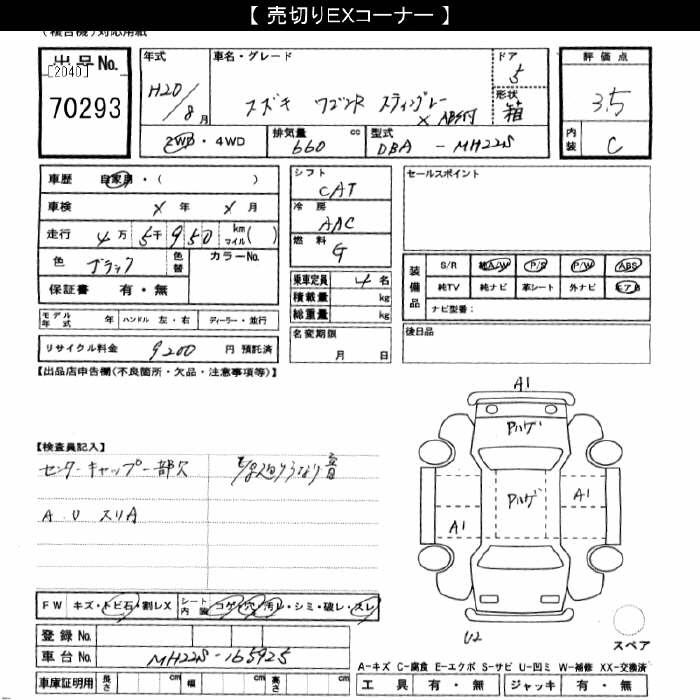 【 売切りEXコーナー 】
(複合機)対応用紙
出品No.
[2040]
70293
年式
H20/8月
車名・グレード
スズキ ワゴンR スティングレー
× ABS付
ドア
5
形状
箱
2WD・4WD
排気量 cc
660
型式
DBA - MH22S
評価点
3.5
内装
C
車歴 自家用・( )
車検 × 年 × 月
走行 4万 5千 950 km マイル( )
色 ブラック 色替 カラーNo.
保証書 有・無
モデル年式 年 ハンドル 左・右 ディーラー・並行
リサイクル料金 9200 円 預託済
シフト
CAT
冷房
AAC
燃料
G
乗車定員 4 名
積載量 kg
総重量 kg
名変期限
月 日
セールスポイント
装備品
S/R 純A/W P/S P/W ABS
純TV 純ナビ 革シート 外ナビ エアB
ナビ型番:
後日品
【出品店申告欄(不良箇所・欠品・注意事項等)】
【検査員記入】
センターキャップ一部欠
A U スリA
A1
Pハゲ
Pハゲ
A1
A1
U2
スペア
FW キズ・トビ石・割レX シート内張 コゲ・穴・汚レ・シミ・破レ・スレ
登録No.
車台No. MH22S-165925
車庫証明用 長さ cm 幅 cm 高さ cm
A-キズ C-腐食 E-エクボ S-サビ U-凹ミ W-補修 XX-交換済
工具 有・無 ジャッキ 有・無